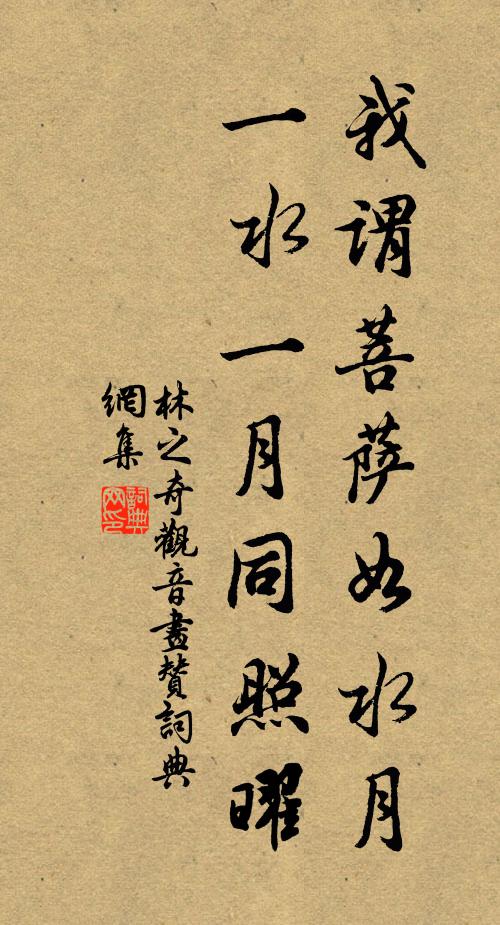 我謂菩薩如水月
一水一月同照曜
林之奇觀音畫贊詞典
網集
詞典網印